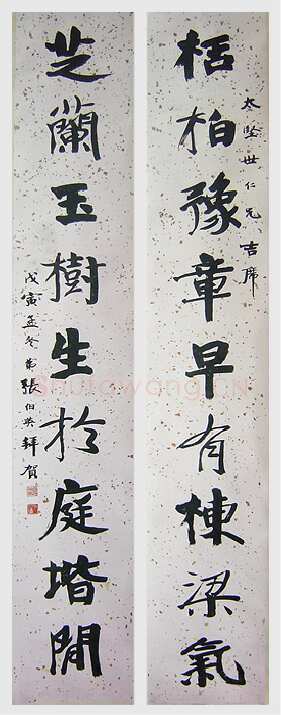 栝柏豫章早有棟梁氣
太堅世仁兄吉席
芝蘭玉樹生於庭堦閒
戊寅孟冬弟張伯英拜賀
Shufawang.CN